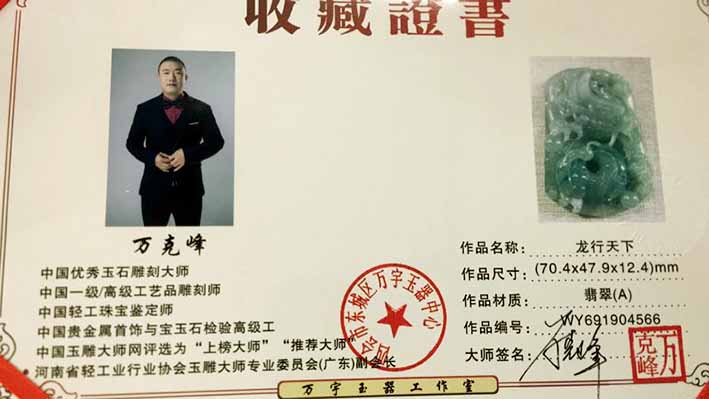 收藏證書
万克峰
中国优秀玉石雕刻大师
中国一级/高级工艺品雕刻师
中国轻工珠宝鉴定师
中国贵金属首饰与宝玉石检验高级工
中国玉雕大师网评选为“上榜大师”“推荐大师”
河南省轻工业行业协会玉雕大师专业委员会(广东)副会长
作品名称: 龙行天下
作品尺寸: (70.4x47.9x12.4)mm
作品材质: 翡翠(A)
作品编号: WY691904566
大师签名:
万克峰
四会市东城区万宇玉器中心
万宇玉器工作室